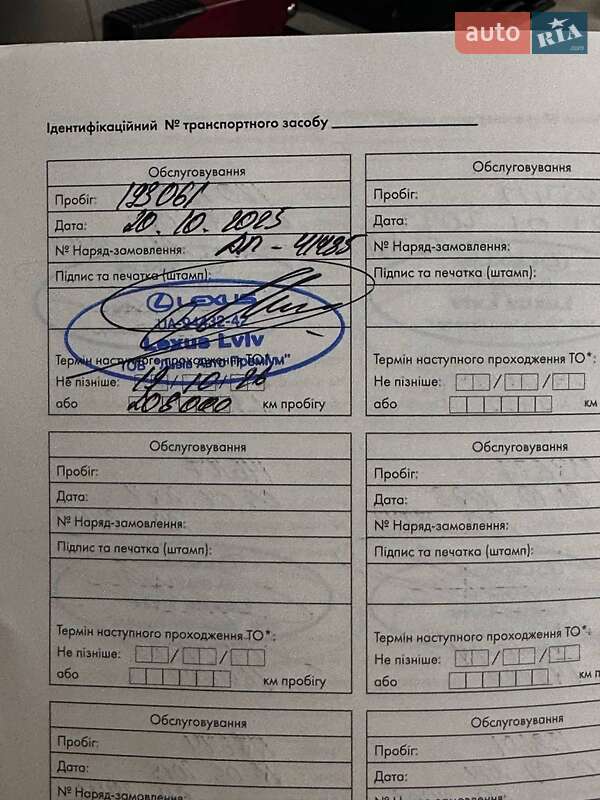 auto RIA .com
Ідентифікаційний № транспортного засобу
Обслуговування
Пробіг: 193061
Дата: 20.10.2025
№ Наряд-замовлення: АП-41435
Підпис та печатка (штамп):
LEXUS
Lexus Lviv
ТОВ "Львів Авто Преміум"
Термін наступного проходження ТО*:
Не пізніше: /10/26
або 208000 км пробігу
Обслуговування
Пробіг:
Дата:
№ Наряд-замовлення:
Підпис та печатка (штамп):
Термін наступного проходження ТО*:
Не пізніше: / /
або км
Обслуговування
Пробіг:
Дата:
№ Наряд-замовлення:
Підпис та печатка (штамп):
Термін наступного проходження ТО*:
Не пізніше: / /
або км пробігу
Обслуговування
Пробіг:
Дата:
№ Наряд-замовлення:
Підпис та печатка (штамп):
Термін наступного проходження ТО*:
Не пізніше: / /
або км п
Обслуговування
Пробіг:
Дата:
№ Наряд-замовлення:
Обслуговування
Пробіг:
Дата:
№ Наряд-замовлення: